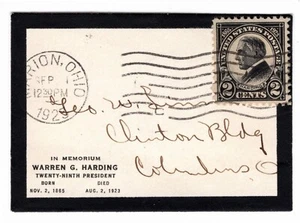 MARION, OHIO
SEP 1
12 30 PM
192
UNITED STATES POSTAGE
2 CENTS 2
Geo. W.
Clinton Bldg
Columbus O
IN MEMORIUM
WARREN G. HARDING
TWENTY-NINTH PRESIDENT
BORN DIED
NOV. 2, 1865 AUG. 2, 1923